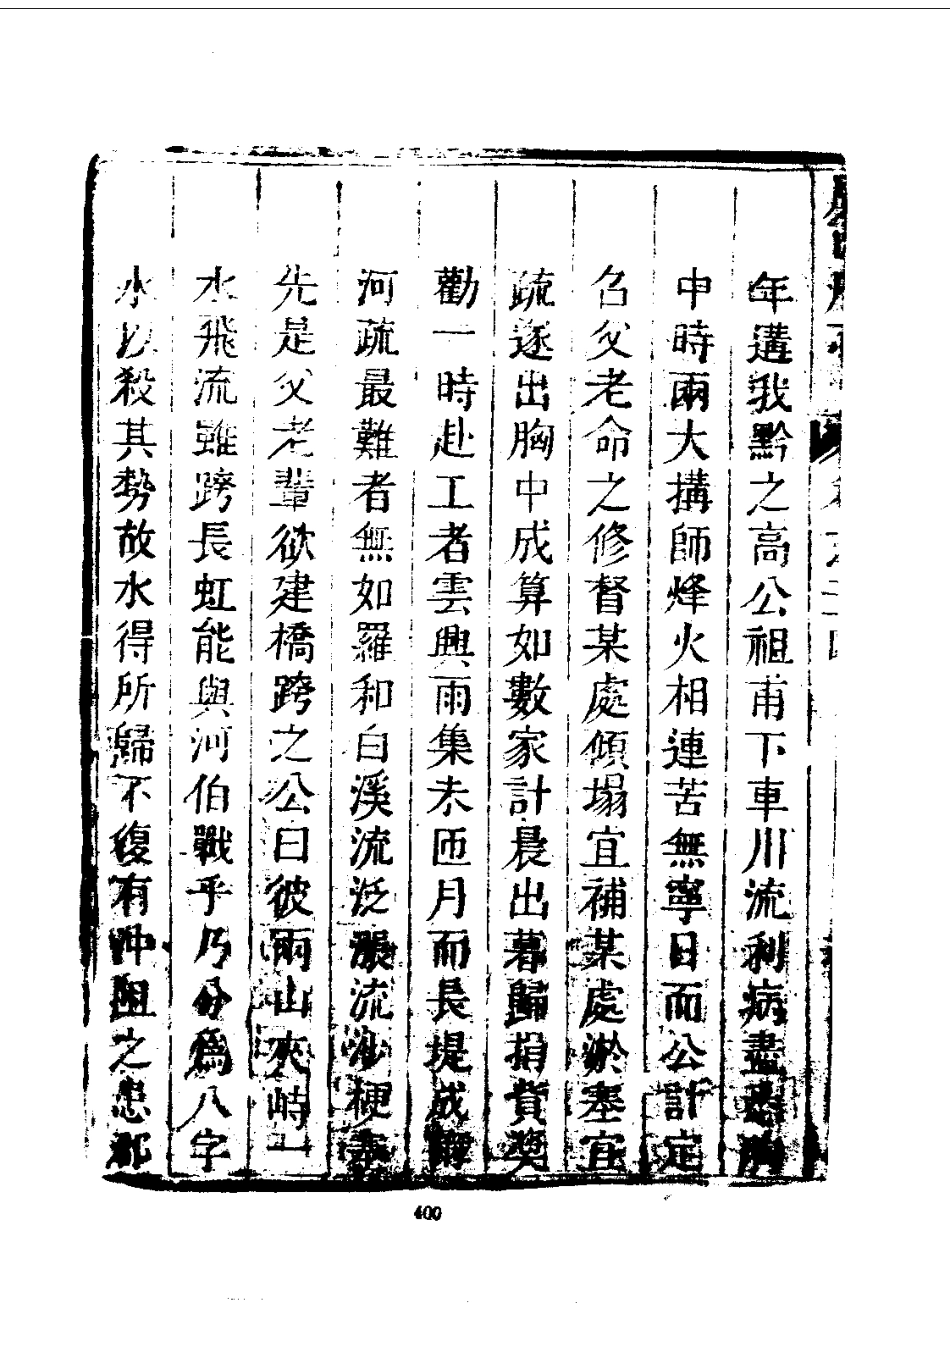 年遘我黔之高公祖甫下車川流利病盡悉胸
中時兩大搆師烽火相連苦無寧日而公計定
召父老命之修督某處傾塌宜補某處淤塞宜
疏遂出胸中成算如數家計晨出暮歸捐貲奬
勸一時赴工者雲興雨集未匝月而長堤成
河疏最難者無如羅和白溪流泛漲流沙梗
先是父老輩欲建橋跨之公曰彼兩山夾峙一
水飛流雖跨長虹能與河伯戰乎乃分爲八字
水以殺其勢故水得所歸不復有冲阻之患
400